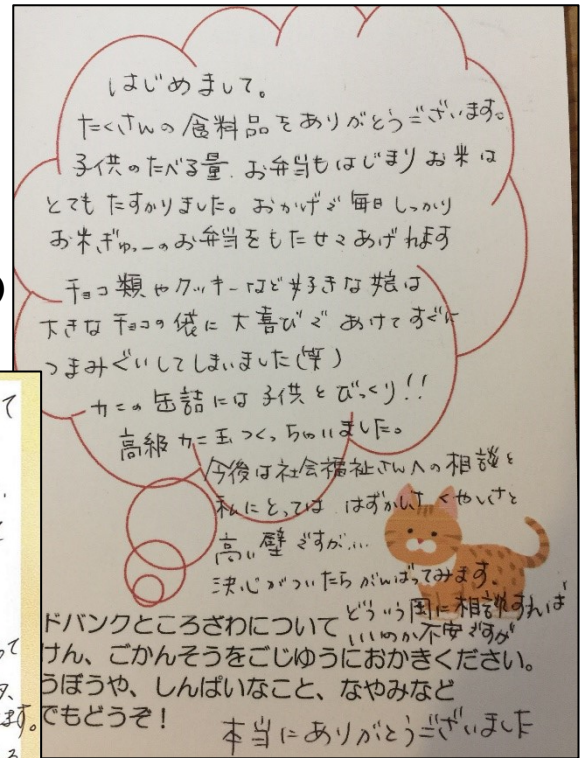 はじめまして。
たくさんの食料品をありがとうございます。
子供のたべる量、お弁当もはじまりお米は
とてもたすかりました。おかげで毎日しっかり
お米ぎゅーのお弁当をもたせてあげれます
チョコ類やクッキーなど好きな娘は
大きなチョコの袋に大喜びであけてすぐに
つまみぐいしてしまいました(笑)
カニの缶詰には子供とびっくり!!
高級カニ玉つくっちゃいました。
今後は社会福祉さんへの相談と
私にとっては、はずかしさくやしさと
高い壁ですが…
決心がついたらがんばってみます。
どういう風に相談すれば
いいのか不安ですが
ドバンクところざわについて
けん、ごかんそうをごじゆうにおかきください。
うぼうや、しんぱいなこと、なやみなど
でもどうぞ！
本当にありがとうございました
て
って
ます。